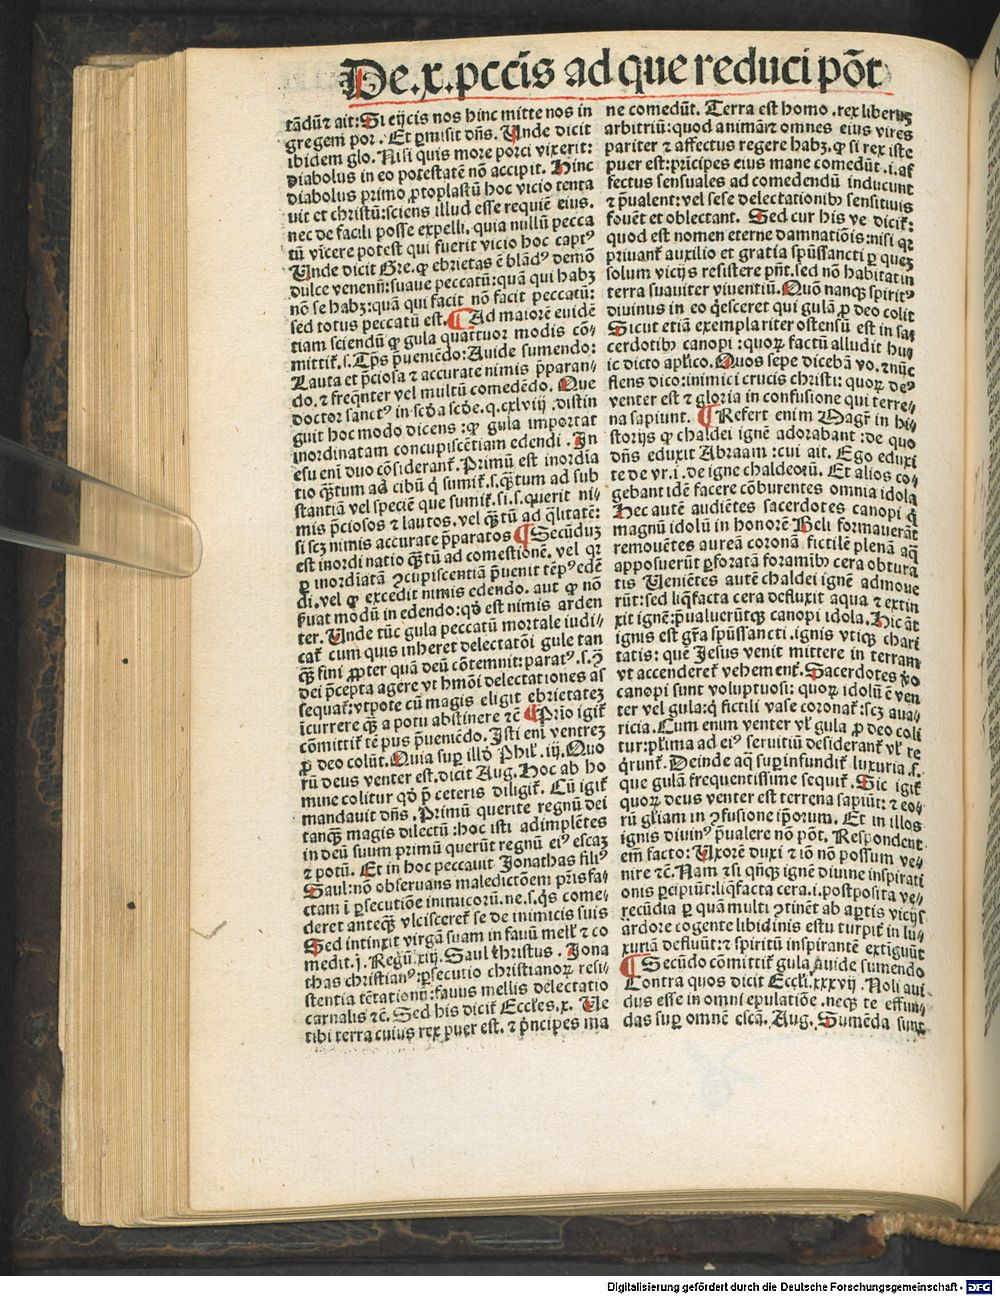 De.x.pccīs ad que reduci põt
tādū⁊ ait: Si eijcis nos hinc mitte nos in
gregem por. Et ꝑmisit dñs. Unde dicit
ibidem glo. Nisi quis more porci vixerit:
diabolus in eo potestatē nõ accipit. Hinc
diabolus primo ꝓtoplastū hoc vicio tenta
uit et christū: sciens illud esse requiē eius.
nec de facili posse expelli, quia nullū pecca
tū vīcere potest qui fuerit vicio hoc captꝰ
Unde dicit Gre. ꝙ ebrietas ē blādꝰ demõ
dulce venenū: suaue peccatū: quã qui habꝫ
nõ se habꝫ: quã qui facit nõ facit peccatū:
sed totus peccatū est. ¶ Ad maiorē euidē
tiam sciendū ꝙ gula quattuor modis cõ-
mittit̃. s. Tp̄s p̄ueniēdo: Auide sumendo:
Lauta et p̄ciosa ⁊ accurate nimis p̄paran-
do. ⁊ freqn̄ter vel multū comedēdo. Que
doctor sanctꝰ in scḋa scḋe. q. cxlviij. distin
guit hoc modo dicens: ꝙ gula importat
inordinatam concupiscētiam edendi. In
esu eni duo cõsiderant̃. Primū est inordia
tio q̄ꝫtum ad cibū q̇ sumit̃. s. q̄ꝫtum ad sub
stantiã vel speciē que sumit̃. si. s. querit ni-
mis p̄ciosos ⁊ lautos. vel q̄ꝫtū ad q̄litatē:
si scꝫ nimis accurate p̄paratos ¶ Secūduꝫ
est inordinatio q̄ꝫtū ad comestionē. vel qꝛ
ꝑ inordīatã ꝯcupiscentiã p̄uenit tēpꝰ edē
di. vel ꝙ excedit nimis edendo. aut ꝙ nõ
ẜuat modū in edendo: qḋ est nimis arden
ter. Unde tūc gula peccatū mortale iudi-
cat̃ cum quis inheret delectatõi gule tan
q̄ꝫ fini ꝓpter quã deū cõtemnit: paratꝰ. s. ꝯ̃
dei p̄cepta agere vt hmõi delectationes as
sequat̃: vtpote cū magis eligit ebrietateꝫ
īcurrere q̄ꝫ a potu abstinere ⁊c̄ ¶ Prio igit̃
cõmittit̃ tēpus p̄ueniēdo. Isti eni ventreꝫ
ꝓ deo colūt. Quia suꝑ illḋ Phil̃. iij. Quo
rū deus venter est. dicit Aug. Hoc ab ho
mine colitur qḋ p̄ ceteris diligit̃. Cū igit̃
mandauit dñs. Primū querite regnū dei
tanq̄ꝫ magis dilectū: hoc isti adimplētes
in deū suum primū querūt regnū eiꝰ escaꝫ
⁊ potū. Et in hoc peccauit Jonathas filiꝰ
Saul: nõ obseruans maledictõem pr̄is fa-
ctam ī ꝑsecutiõe inimicorū. ne. s. q̇s come-
deret anteq̄ꝫ vlcisceret̃ se de inimicis suis
Sed intinxit virgã suam in fauū mell̃ ⁊ co
medit. j. Regū xiij. Saul christus. Jona
thas christianꝰ: ꝑsecutio christianoꝝ resi-
stentia tētationū: fauus mellis delectatio
carnalis ⁊c̄. Sed his dicit̃ Eccl̃es. x. Ue
tibi terra cuius rex puer est. ⁊ p̄ncipes ma
ne comedūt. Terra est homo. rex liberuꝫ
arbitriū: quod animãꝝ omnes eius vires
pariter ⁊ affectus regere habꝫ. ꝙ si rex iste
puer est: pr̄icipes eius mane comedūt. i. af
fectus sensuales ad comedendū inducunt
⁊ p̄ualent: vel sese delectationibꝰ sensitiuis
fouēt et oblectant. Sed cur his ve dicit̃:
quod est nomen eterne damnatiõis: nisi qꝛ
priuant̃ auxilio et gratia spūssancti ꝑ queꝫ
solum vicijs resistere pn̄t. sed nõ habitat in
terra suauiter viuentiū. Quõ nanq̄ꝫ spiritꝰ
diuinus in eo q̇esceret qui gulã ꝓ deo colit
Sicut etiã exemplariter ostensū est in sa-
cerdotibꝰ canopi: quoꝝ factū alludit hu-
ic dicto apl̃ico. Quos sepe dicebã vo. ⁊ nūc
flens dico: inimici crucis christi: quoꝝ deꝰ
venter est ⁊ gloria in confusione qui terre-
na sapiunt. ¶ Refert enim Magr̃ in hi-
storijs ꝙ chaldei ignē adorabant: de quo
dñs eduxit Abraam: cui ait. Ego eduxi
te de vr. i. de igne chaldeorū. Et alios co-
gebant idē facere cõburentes omnia idola
Hec autē audiētes sacerdotes canopi q̇
magnū idolū in honorē Beli formauerãt
remouētes aureã coronã fictilē plenã aq̄
apposuerūt ꝑforatã foramībꝰ cera obtura
tis Uenietes autē chaldei ignē admoue
rūt: sed liq̄facta cera defluxit aqua ⁊ extin
xit ignē: p̄ualuerūtq̄ꝫ canopi idola. Hic āt
ignis est gr̄a spūssancti. ignis vtiq̄ꝫ chari
tatis: que Jesus venit mittere in terram
vt accenderet̃ vehement̃. Sacerdotes ꝟo
canopi sunt voluptuosi: quoꝝ idolū ē ven
ter vel gula: q̇ fictili vase coronat̃: scꝫ aua-
ricia. Cum enim venter vl̃ gula ꝓ deo coli
tur: prima ad eiꝰ seruitiū desiderant̃ vl̃ re
q̇runt̃. Deinde aq̄ suꝑinfundit̃ luxuria. s.
que gulã frequentissime sequit̃. Sic igit̃
quoꝝ deus venter est terrena sapiūt: ⁊ eo-
rū gl̃iam in ꝯfusione ip̄orum. Et in illos
ignis diuinꝰ p̄ualere nõ põt. Respondent
em̄ facto: Uxorē duxi ⁊ iõ nõ possum ve-
nire ⁊c̄. Nam ⁊ si qn̄q̄ꝫ ignē diuine inspirati
onis ꝑcipiūt: liq̄facta cera. i. postposita ve-
recūdia ꝑ quã multi ꝯtinēt ab aꝑtis vicijs
ardore cogente libidinis estu turpit̃ in lu-
xuriã defluūt: ⁊ spiritū inspirantē extiguūt
¶ Secūdo cõmittit̃ gula auide sumendo
Contra quos dicit Eccl̃i. xxxvij. Noli aui
dus esse in omni epulatiõe. neq̄ꝫ te effun-
das suꝑ omnē escã. Aug. Sumēda sunt
Digitalisierung gefördert durch die Deutsche Forschungsgemeinschaft - DFG